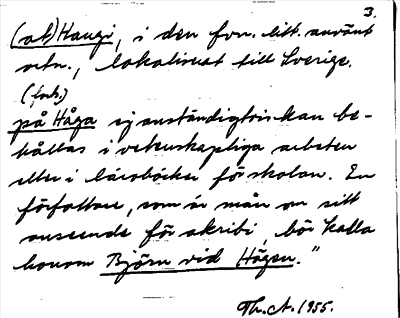 3.
(at) Haugi, i den forn. litt. använt
ortn., lokaliserat till Sverige.
(forts.)
på Håga ej anständigtvis kan be-
hållas i vetenskapliga arbeten
eller i läroböcker för skolan. En
författare, som är mån om sitt
anseende för akribi, bör kalla
honom Björn vid Högen."
Th. A. 1955.